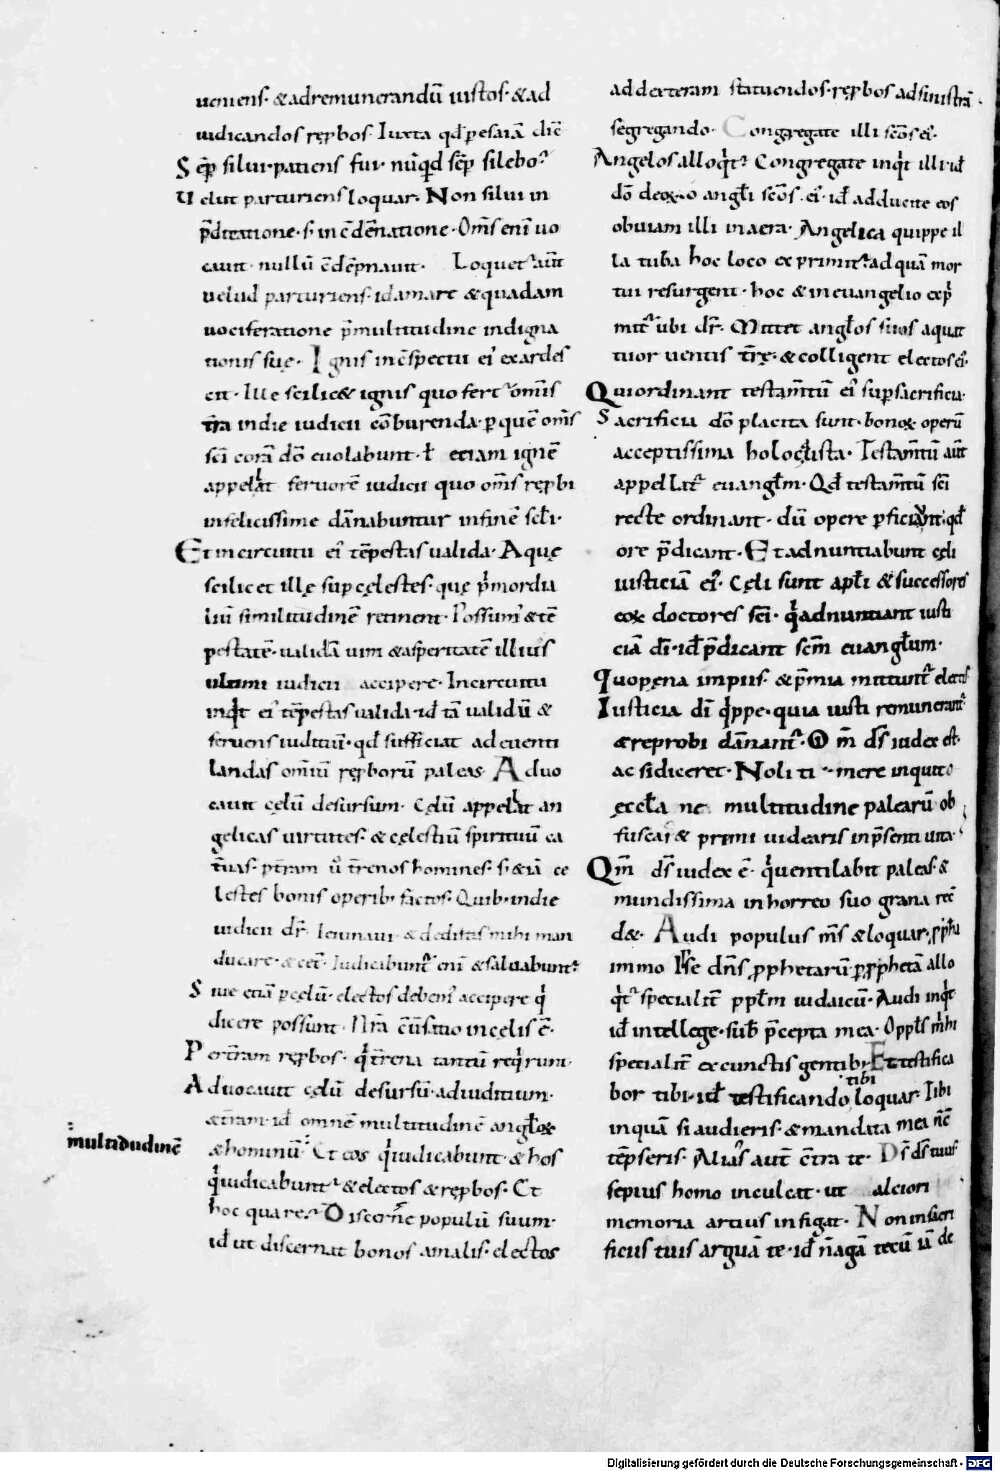 ueniens· & ad remunerandū iustos· & ad
iudicandos rep̱bos· Iuxta qd̄ p esaiā dic̄
Sēp̱ silui· patiens fui· nūq̇d sēp̱ silebo?
Uelut parturiens loquar· Non silui in
p̄dicatione· s; in cōdēnatione· Om̄s eni uo
cauit· nullū cōdēpnauit· Loquet aut̄
uelud parturiens· id amare & quadam
uociferatione p̄ multitudine indigna
tionis suę· Ignis in cspectu ei' exardes
cit· Ille scilic& ignis quo fert' om̄is
tr̄ra in die iudicii cōburenda· p quē om̄s
sc̄i corā dō euolabunt· ł etiam ignē
appellat feruorē iudicii quo om̄s rep̱bi
infelicissime dānabuntur in finē scł̄i·
Et in circuitu ei' tēpestas ualida· Aquę
scilicet illę sup cęlestes· quę p̄mordia
liū similitudinē retinent· Possum' & tē
pestatē· ualidā uim & asperitatē illius
ultimi iudicii accipere· In circuitu
inq̇t ei' tēpestas ualida· id tā ualidū &
feruens iuditiū· qd̄ sufficiat ad euenti
landas omniū rep̱borū paleas Aduo
cauit cęlū desursum· Cęlū appellat an
gelicas uirtutes· & cęlestiū spirituū ca
t̄uas· p tr̄ram ū t̄renos homines· s; & iā ce
lestes bonis operib; factos· Quib; in die
iudicii dr̄· Ieiunaui & dedistis mihi man
ducare· & cet̄· Iudicabunt' eni & saluabunt'
Siue etiā p cęlū· electos debem' accipere q̇
dicere possunt· Nr̄a cūersatio in celis ē·
Per tr̄ram rep̱bos· q̇ t̄rena tantū req̇runt·
Aduocauit cęlū desursū· ad iuditium·
& tr̄ram· id omnē multitudinē angł̄oꝝ
multidudinē
& hominū· Et eos q̇ iudicabunt· & hos
q̇ iudicabunt'· & electos & rep̱bos· Et
hoc quare? Discernere populū suum·
id ut discernat bonos a malis· electos
ad dexteram statuendos· rep̱bos ad sinistrā
segregando· Congregate illi sc̄os ei'·
Angelos alloq̇t'· Congregate inq̇t illi id
dō deoꝝ· o angł̄i sc̄os· ei'· id adducite eos
obuiam illi in aera· Angelica quippe il
la tuba hoc loco exprimit' ad quā mor
tui resurgent· hoc & in euangelio exp̄
mit' ubi dr̄· Mittet angł̄os suos a quat
tuor uentis tr̄rę· & colligent electos ei'·
Qui ordinant testam̄tū ei' sup sacrificia·
Sacrificia dō placita sunt· bonoꝝ operū
acceptissima holocausta· Testam̄tū aut̄
appellat' euangł̄m· Qd̄ testam̄tū sc̄i
recte ordinant· dū opere pficiunt· qd̄
ore p̄dicant· Et adnuntiabunt cęli
iusticiā ei'· Cęli sunt apł̄i & successores
eoꝝ doctores sc̄i· q̇ adnuntiant iusti
ciā dī· id p̄dicant sc̄m euangł̄ium·
Quo pęna impiis· & p̄mia mittunt' electis
Iusticia dī q̇ppe· quia iusti remunerant'
& reprobi dānant'· Qm̄ ds̄ iudex est·
ac si diceret· Noli timere inquit o
eccł̄a ne multitudine palearū ob
fuscari & premi uidearis in p̄senti uita·
Qm̄ ds̄ iudex ē· q̇ uentilabit paleas· &
mundissima in horreo suo grana rec̄
d&· Audi populus ms̄ & loquar·
immo Ipse dn̄s p̱phetarū p p̱phetā allo
q̇t' specialit̄ ppł̄m iudaicū· Audi inq̇t
id intellege· sub p̄cepta mea· Oppł̄s mihi
specialit̄ ex cunctis gentib; Et testifica
tibi
bor tibi· id testificando loquar· Tibi
inquā si audieris· & mandata mea n̄c̄
tēpseris· Alias aut̄ c̄tra te· Ds̄ ds̄ tuus
sepius homo inculcat· ut altiori
memoria artius infigat· Non in sacri
ficiis tuis arguā te· id n̄ agā tecū iā de
Digitalisierung gefördert durch die Deutsche Forschungsgemeinschaft - DFG